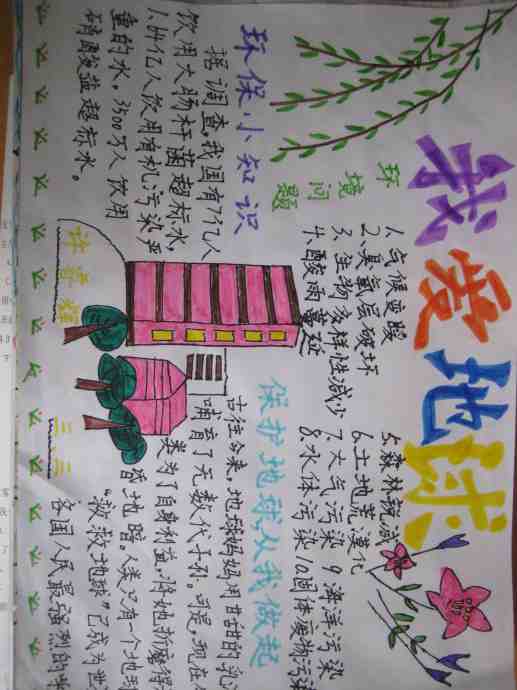 我爱地球
环境问题
1、气候变暖 5、森林锐减
2、臭氧层破坏 6、土地荒漠化
3、生物多样性减少 7、大气污染 9、海洋污染
4、酸雨蔓延 8、水体污染 10、固体废物污染
环保小知识
据调查,我国有7亿人
饮用大肠杆菌超标水,
亿人饮用有机污染严
重的水,3500万人饮用
硝酸盐超标水。
保护地球从我做起
古往今来,地球妈妈用甘甜的乳
哺育了无数代子孙。可是,现在
类为了自身利益,将她折磨得
昏地暗。人类只有一个地球
救地球"已成为世
各国人民最强烈的
许
三二